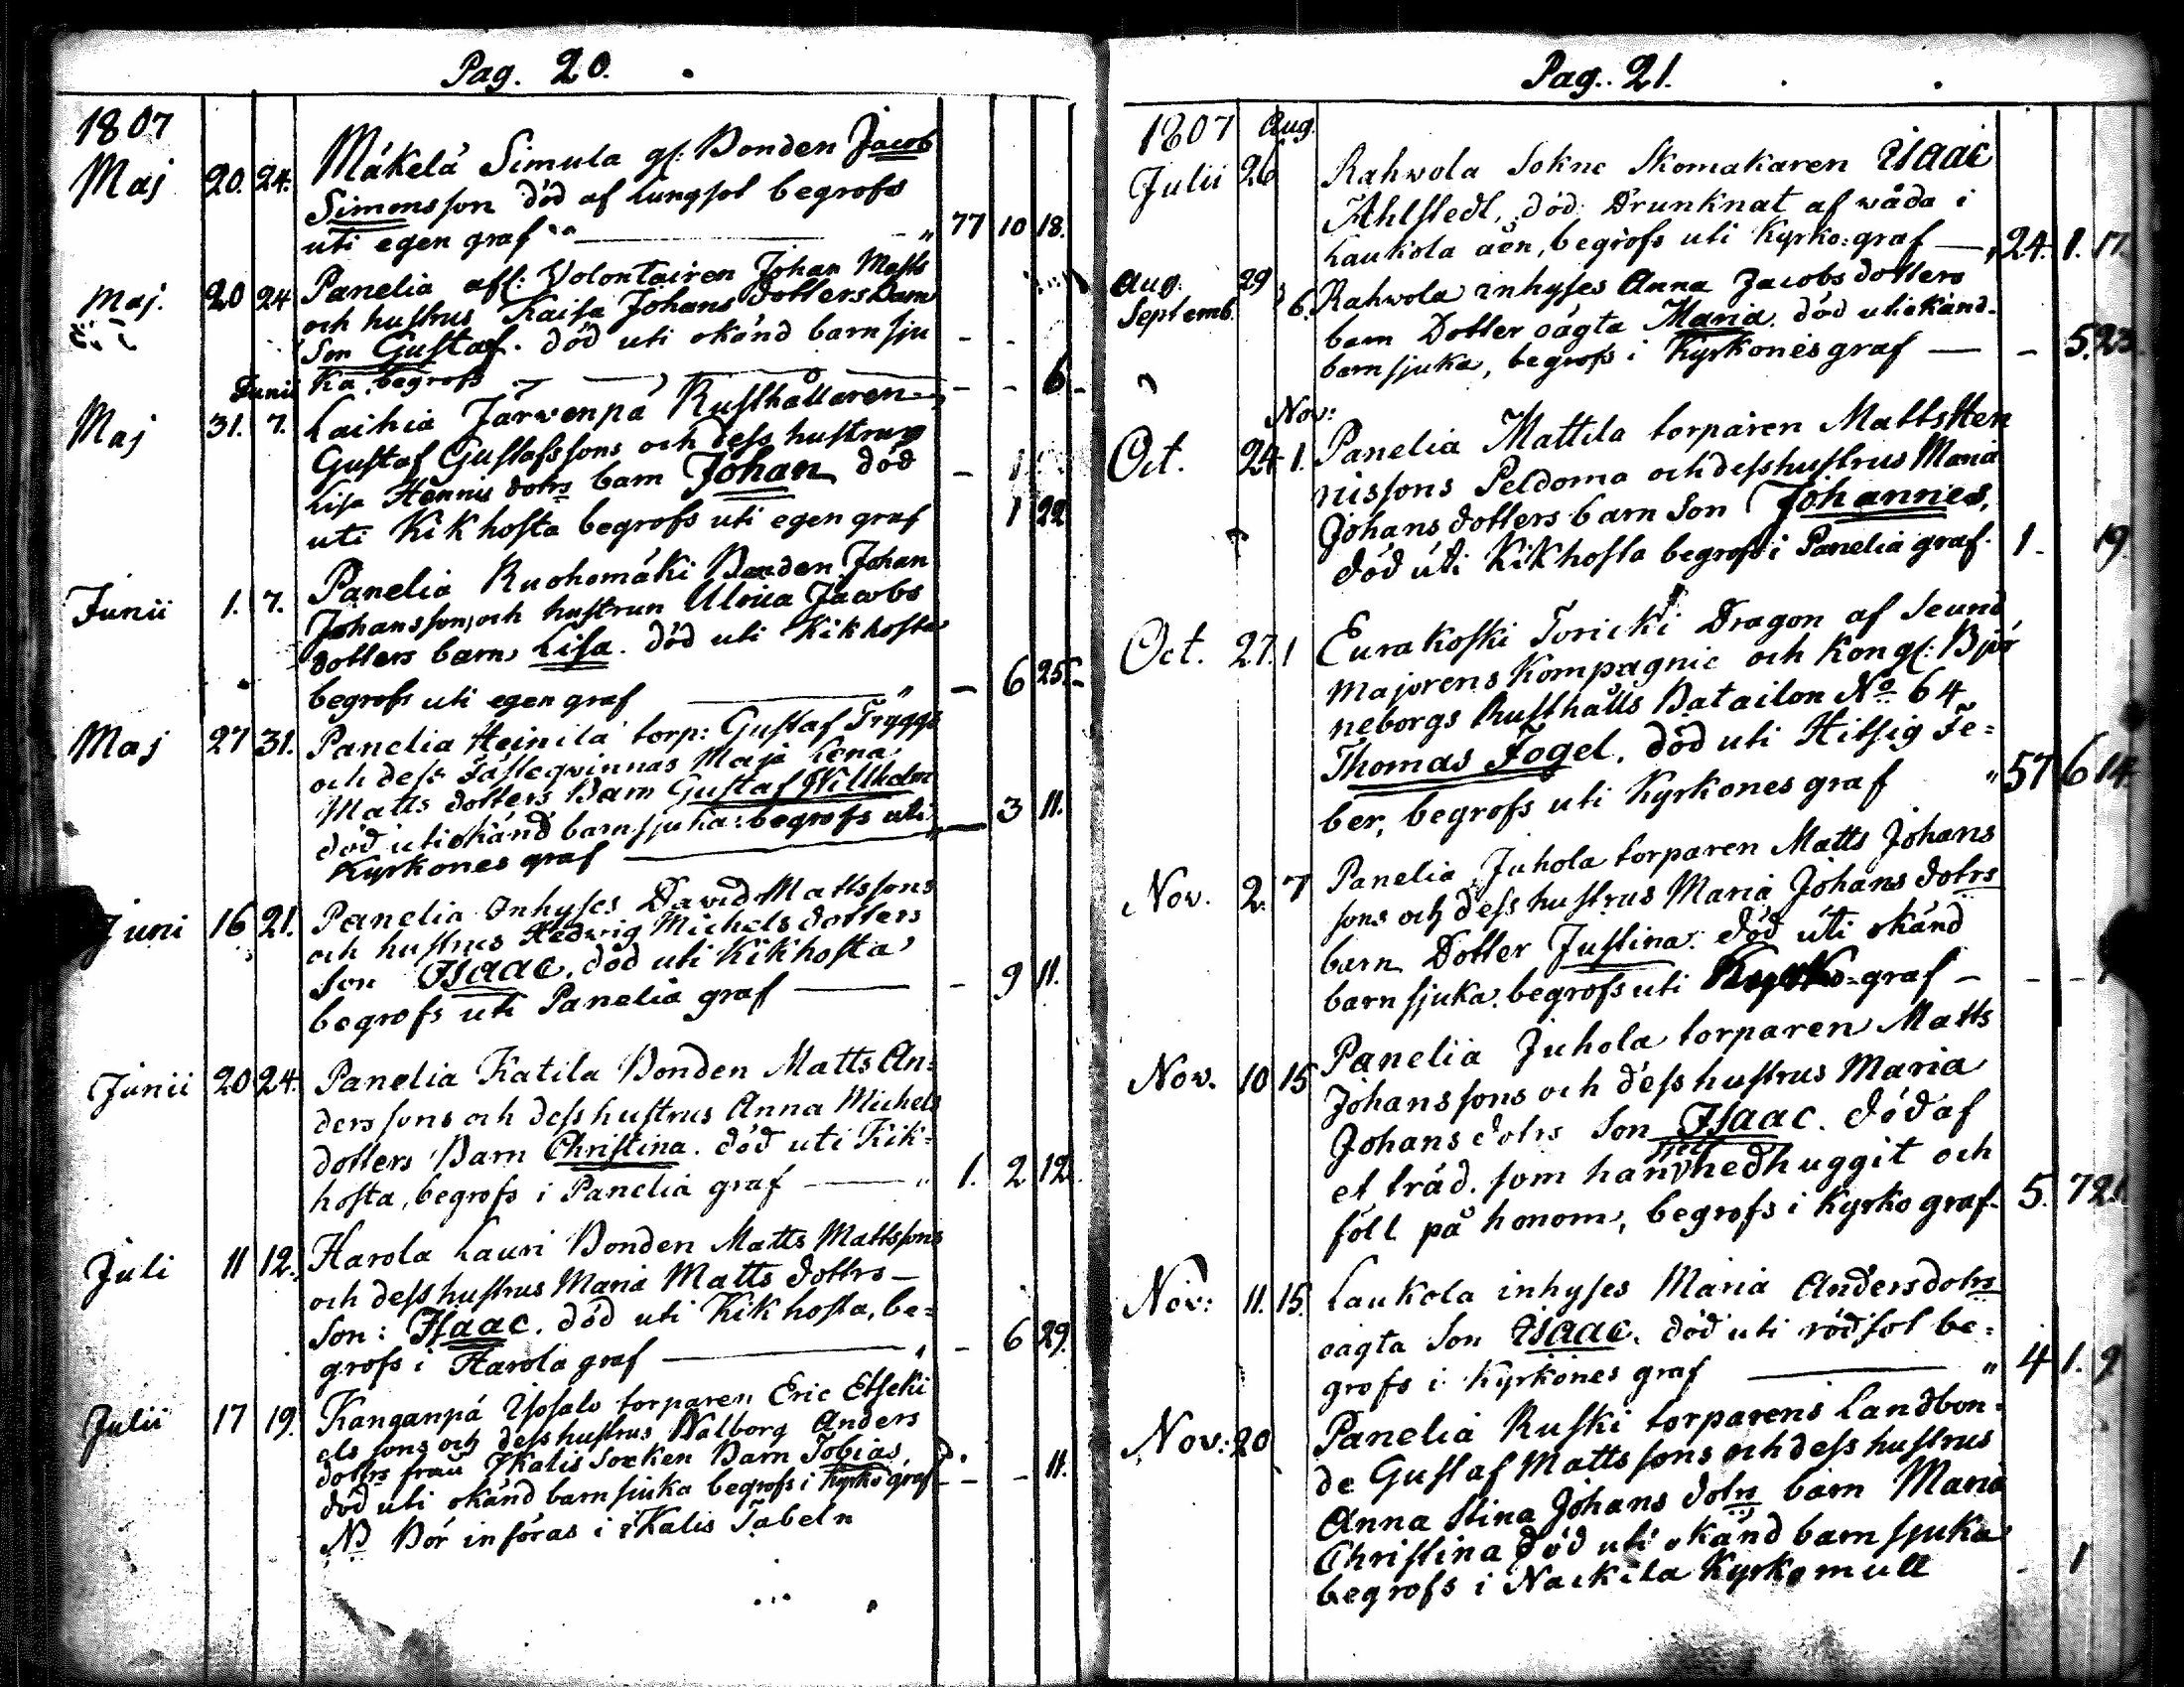 Pag. 20.
1807
Maj 20. 24. Mäkelä Simula gl: Bonden Jacob
Simonsson död af lungsot begrofs
uti egen graf — " 77 10 18.
Maj. 20 24 Panelia afl: Volontairen Johan Matts
och hustrus Kaisa Johans dotters barn
Son Gustaf. död uti okänd barnsju
ka begrofs — - - 6
Junii
Maj 31. 7. Laihia Järwenpä Rusthållaren
Gustaf Gustafssons och dess hustrus
Lisa Hennis dotrs barn Johan död
uti Kikhosta begrofs uti egen graf 1 22
Junii 1. 7. Panelia Ruohomäki Bonden Johan
Johansson, och hustrun Ulrica Jacobs
dotters barn Lisa. död uti Kikhosta
begrofs uti egen graf — " - 6 25
Maj 27 31. Panelia Heinilä torp: Gustaf Tryggs
och dess Fästeqwinnas Maja Lena
Matts dotters Barn Gustaf Willhelm
död uti okänd barnsjuka: begrofs uti — 3 11.
Kyrkones graf —
Juni 16 21. Panelia Inhyses David Mattssons
och hustrus Hedwig Michels dotters
Son Isaac. död uti Kikhosta
begrofs uti Panelia graf — - 9 11.
Junii 20 24. Panelia Katila Bonden Matts An=
derssons och dess hustrus Anna Michels
dotters Barn Christina. död uti Kik=
hosta, begrofs i Panelia graf — " 1. 2 12
Juli 11 12. Harola Lauri Bonden Matts Mattssons
och dess hustrus Maria Matts dottrs —
Son: Isaac. död uti Kikhosta, be=
grofs i Harola graf — " - 6 29.
Julii 17 19. Kanganpä torparen Eric
els sons och dess hustrus Walborg Anders
dotrs från Ikalis Socken Barn Tobias
död uti okänd barnsjuka begrofs i Kyrko graf - - 11.
NB Bör införas i iKalis Tabeln
Pag. 21.
1807 Aug.
Julii 26 Rahwola Sokne Skomakaren Isaac
Ahlstedt, död: Drunknat af wåda i
Laukola åen, begrofs uti Kyrko=graf — " 24. 1. 17.
Aug. 29
Septemb. 6. Rahwola inhyses Anna Jacobs dotters
barn Dotter oägta Maria. död uti okänd
barnsjuka, begrofs i Kyrkones graf — - 5. 23
Nov:
Oct. 24 1. Panelia Mattila torparen Matts Hen
nissons Peldoma och dess hustrus Maria
Johans dotters barn Son Johannes,
död uti Kikhosta begrofs i Panelia graf. 1 - 19
Oct. 27. 1 Eurakoski Dragon af Secund
Majorens Kompagnie och Kongl: Bjö
neborgs Rusthålls Batailon No 64
Thomas Fogel, död uti Hitsig Fe=
ber, begrofs uti Kyrkones graf " 57 6 14.
Nov. 2. 7 Panelia Juhola torparen Matts Johans
sons och dess hustrus Maria Johans dotrs
barn Dotter Justina. död uti okänd
barnsjuka. begrofs uti Kyrko=graf — - -
Nov. 10 15 Panelia Juhola torparen Matts
Johanssons och dess hustrus Maria
Johans dotrs Son Isaac. död af
et träd. som han sjelf nedhuggit och
föll på honom, begrofs i Kyrko graf. 5. 7 21.
Nov: 11. 15. Laukola inhyses Maria Andersdotrs
oägta Son Isaac. död uti rödsot be=
grofs i Kyrkones graf — " 4 1. 9
Nov: 20 Panelia Kuski torparens Landbon=
de Gustaf Mattssons och dess hustrus
Anna Stina Johans dotrs barn Maria
Christina död uti okänd barnsjuka
begrofs i Nackila Kyrkomull - 1